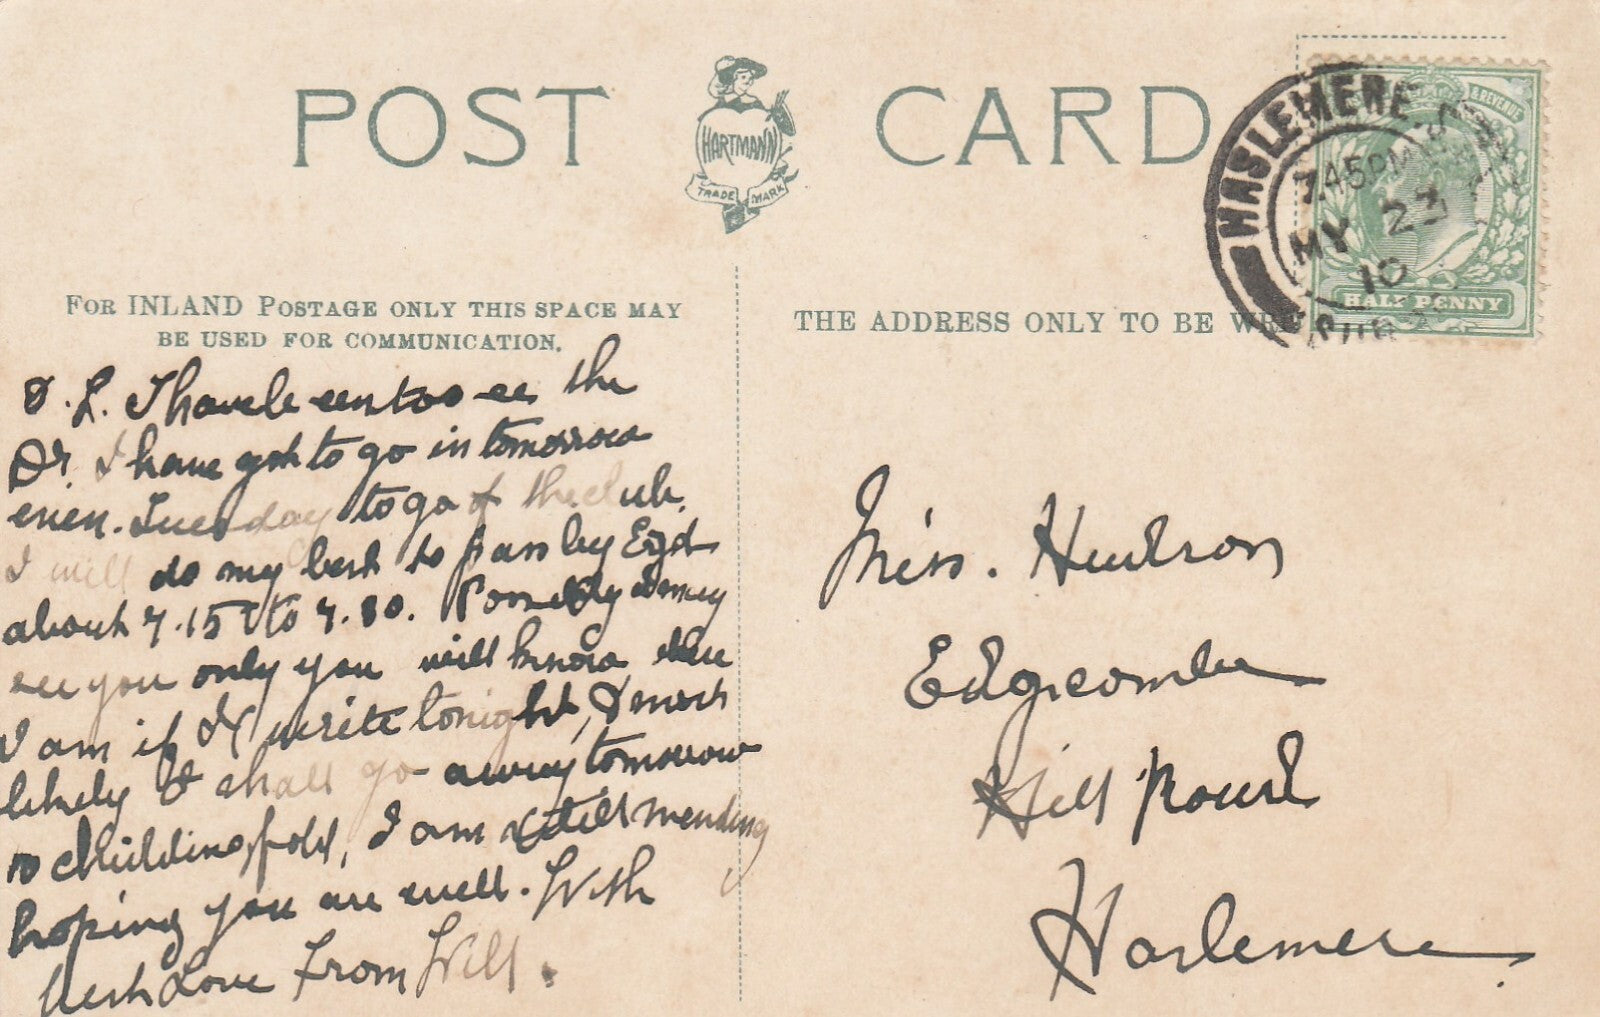 POST CARD
HARTMANN
TRADE MARK
HASLEMERE
7.45PM
MY 23
10
& REVENUE
HALF PENNY
FOR INLAND POSTAGE ONLY THIS SPACE MAY
BE USED FOR COMMUNICATION.
THE ADDRESS ONLY TO BE WR
D. L. I have been to see the
Dr. I have got to go in tomorrow
even. Tuesday to go to the club.
I will do my best to pass by Egd
about 7.15 to 7.30. Possibly I may
see you only you will know where
I am if I write tonight, & most
likely I shall go away tomorrow
to Chiddingfold, I am still mending
hoping you are well. With
best Love From Will.
Miss. Hudson
Edgecombe
Hill Road
Haslemere